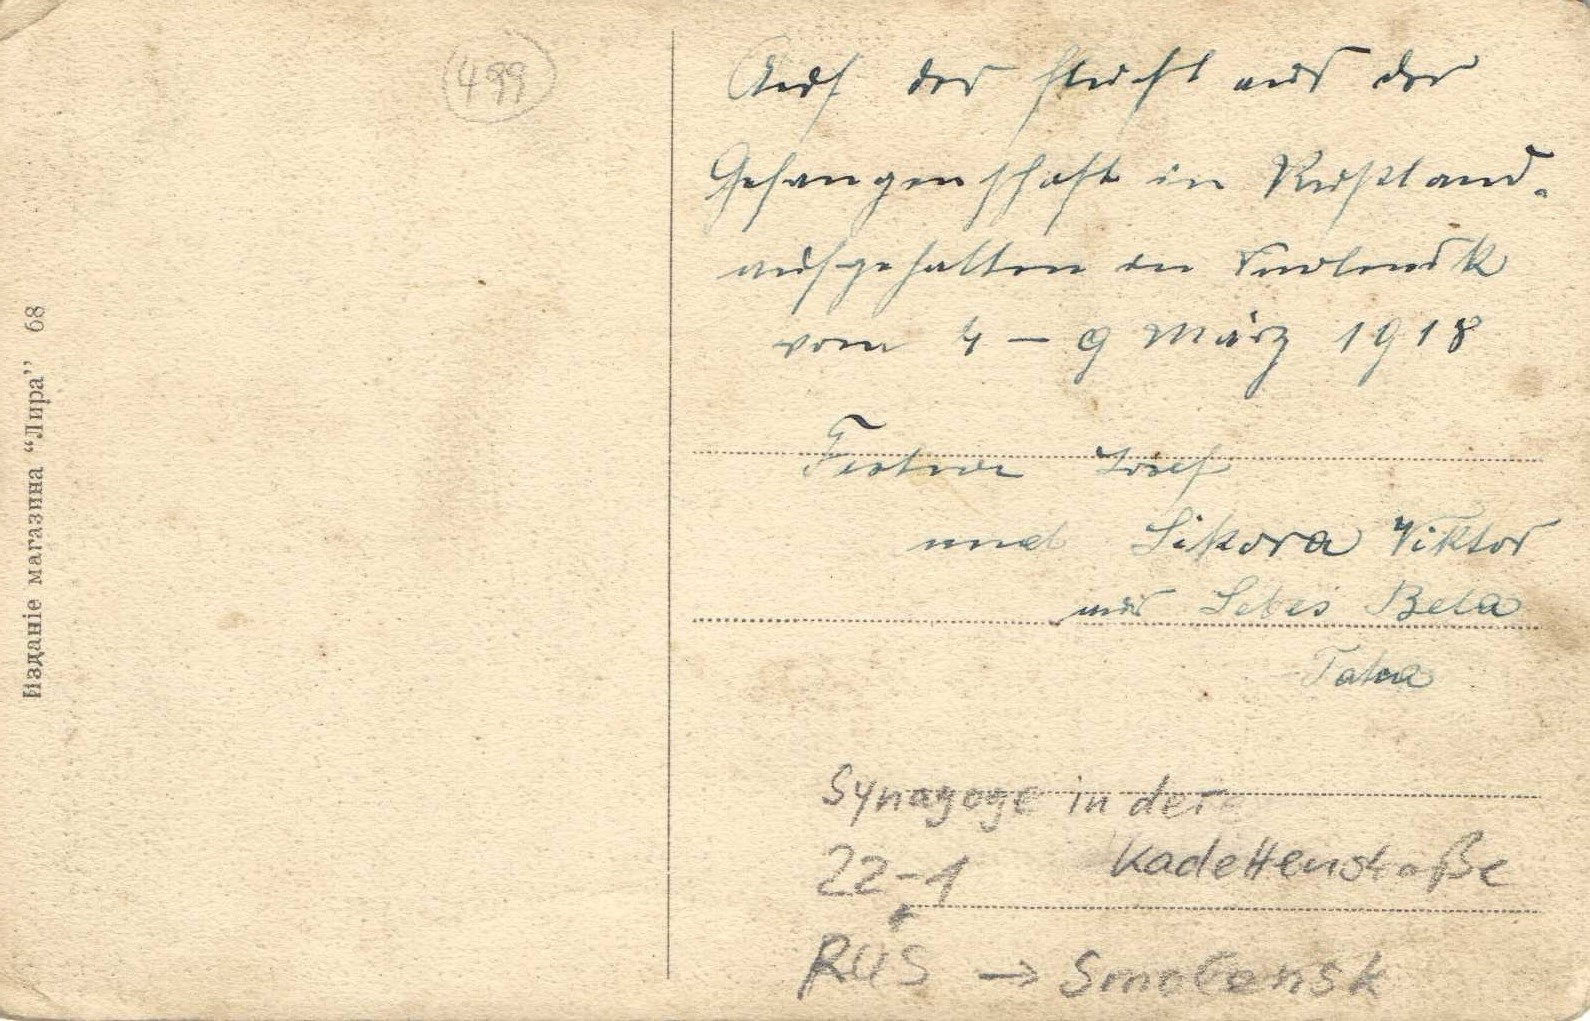 499
Изданіе магазина “Лира” 68
Auf der Flucht aus der
Gefangenschaft in Rußland.
aufgehalten in Smolensk
vom 4 – 9 März 1918
Josef
und Sikora Viktor
Bela
Synagoge in der
Kadettenstraße
22-1
RUS → Smolensk